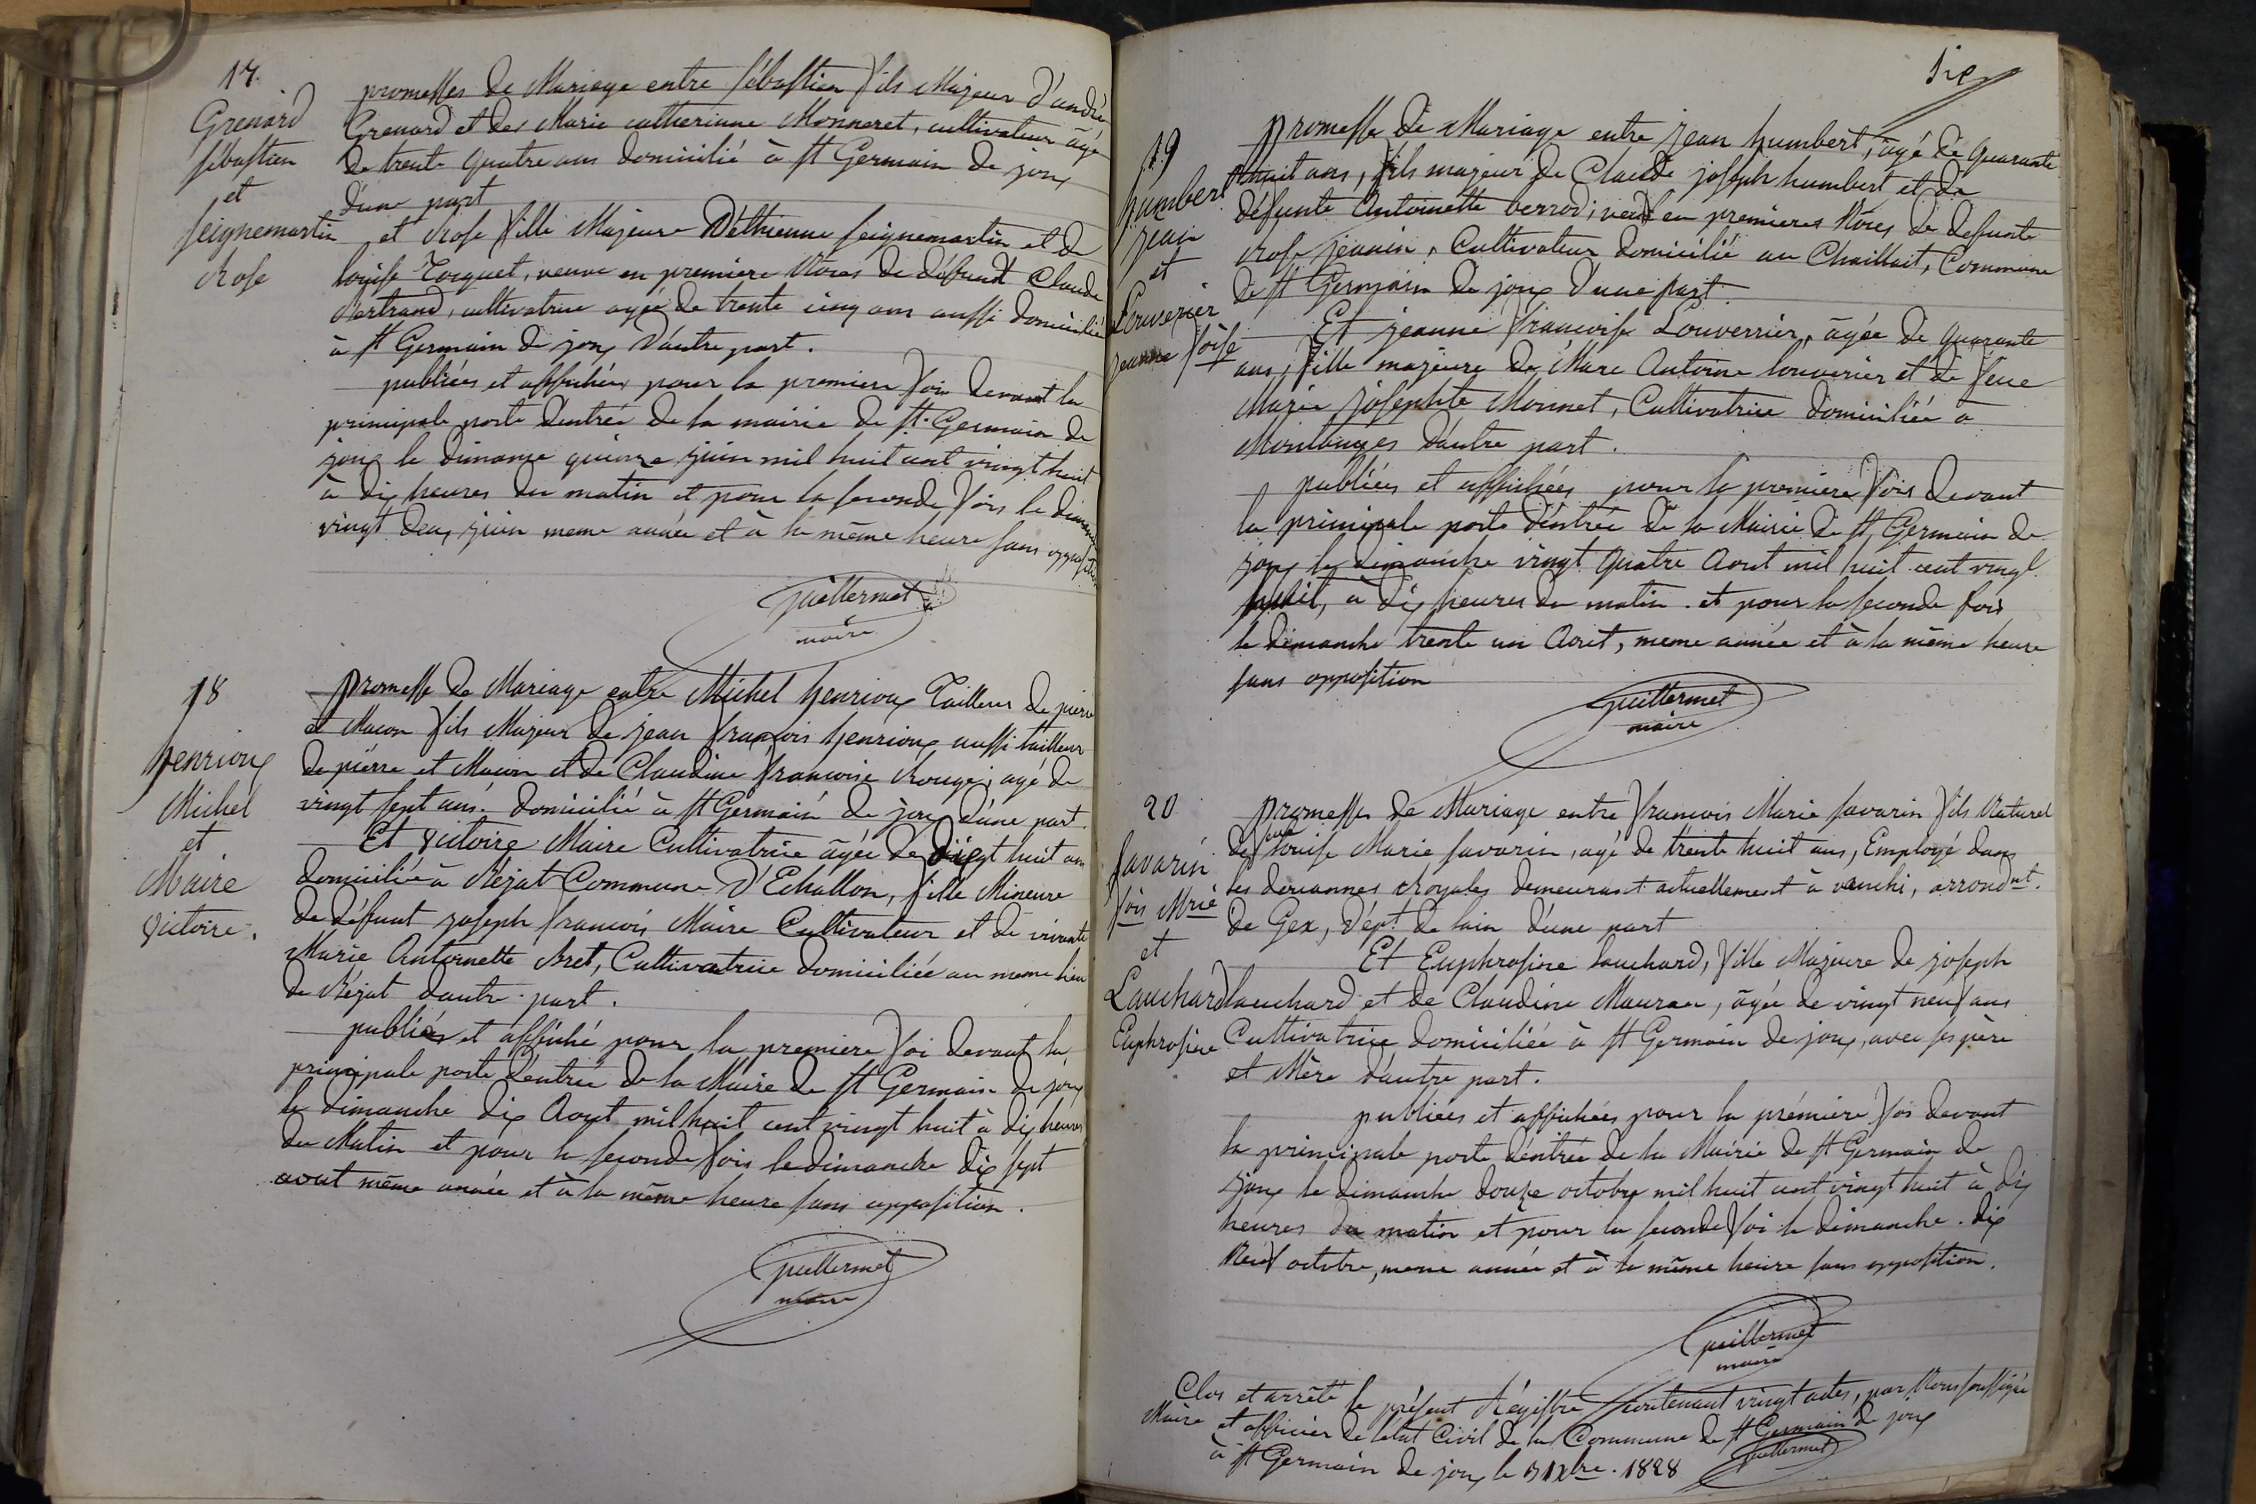 17.
Grenard
sébastien
et
seignemartin
Rose
promesses de Mariage entre sébastien fils Majeur d'andré
Grenard et des Marie catherinne Monneret, cultivateur âgé
de trente quatre ans domicilié à st Germain de joux
d'une part
et Rose fille Majeure D'éthienne seignemartin et de
louise Tocquet, veuve en premiere Noces de défunt Claude
Bertrand, cultivatrice agée de trente cinq ans aussi domicilié
à st Germain de joux D'autre part.
publiées et affichées pour la premiere fois devant la
principale porte d'entrée de la mairie de st. Germain de
joux le dimance quinze juin mil huit cent vingt huit
à dix heures du matin et pour la seconde fois le dimanche
vingt deux juin meme année et à la même heure sans opposition
Guillermet
maire
18
henrioux
Michel
et
Maire
victoire.
promesse de Mariage entre Michel henrioux Tailleur de pierre
et Macon fils Majeur de jean francois henrioux aussi tailleur
de pierre et Macon et de Claudine francoise Rouge; agé de
vingt sept ans. domicilié à st Germain de joux d'une part.
Et victoire Maire Cultivatrice âgée de dixt huit ans
domiciliée à Réjat Commune D'Echallon, fille Mineure
de défunt joseph francois Maire Cultivateur et de vivante
Marie Antoinette Bret, Cultivatrice domiciliée au meme lieu
de Réjat d'autre part.
publiés et affiché pour la premiere foi devant la
principale porte d'entrée de la Maire de st Germain de joux
le dimanche dix Aout mil huit cent vingt huit à dix heures
du Matin et pour la seconde fois le dimanche dix sept
aout même année et à la même heure sans opposition.
Guillermet
maire
six
19
humbert
jean
et
Louverier
jeanne foise
promesse de Mariage entre jean humbert, agé de quarante
huit ans, fils majeur de Claude joseph humbert et de
défunte Antoinette berrod; veuf en premieres Noces de defunte
Rose jeanin, Cultivateur domicilié au Chaillait, Commune
de st Germain de joux d'une part.
Et jeanne francoise Louverrier, âgée de quarante
ans, fille majeure de Marc Antoine louverier et de feue
Marie josephte Monnet, Cultivatrice domiciliée à
Montanges d'autre part.
publiées et affichées pour la premiere fois devant
la principale porte d'entrée de la Mairie de st Germain de
joux le dimanche vingt quatre Aout mil huit cent vingt
huit, à dix heures du matin. et pour la seconde fois
le dimanche trente un Aout, meme année et à la même heure
sans opposition
Guillermet
maire
20
Savarin
fois Mrie
et
Lauchard
Euphrosine
promesses de Mariage entre francois Marie savarin fils Naturel
de feue louise Marie savarin, agé de trente huit ans, Employé dans
les douannes Royales demeurant actuellement à vanchi, arrondmt.
de Gex, Dépt. de l'ain d'une part
Et Euphrosine lauchard, fille Majeure de joseph
lauchard et de Claudine Maurau, âgée de vingt neuf ans
Cultivatrice domiciliée à st Germain de joux, avec ses père
et Mère d'autre part.
publiées et affichées pour la prémière fois devant
la principale porte d'éntrée de la Mairie de st Germain de
joux le dimanche douze octobre mil huit cent vingt huit à dix
heures du matin et pour la seconde foi le dimanche. dix
Neuf octobre, meme année et à la même heure sans opposition.
Guillermet
maire
Clos et arrêté le présent Régistre contenant vingt actes, par Nous soussigné
Maire et officier de l'etat Civil de la Commune de st Germain de joux
à st Germain de joux le Xbre. 1828
Guillermet